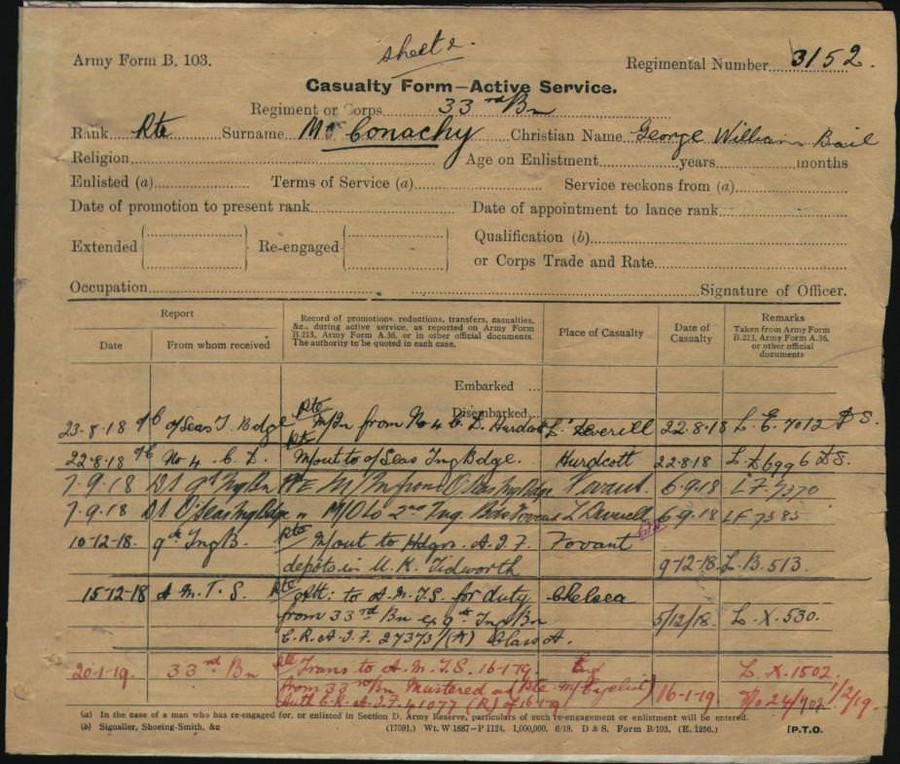 sheet 2.
Army Form B. 103.
Regimental Number 3152.
Casualty Form—Active Service.
Regiment or Corps 33rd Bn
Rank Pte Surname McConachy Christian Name George William Bail
Religion Age on Enlistment years months
Enlisted (a) Terms of Service (a) Service reckons from (a)
Date of promotion to present rank Date of appointment to lance rank
Extended Re-engaged Qualification (b)
or Corps Trade and Rate
Occupation Signature of Officer.
Report
Date From whom received
Record of promotions, reductions, transfers, casualties, &c., during active service, as reported on Army Form B.213, Army Form A.36, or in other official documents. The authority to be quoted in each case.
Place of Casualty
Date of Casualty
Remarks
Taken from Army Form B.213, Army Form A.36, or other official documents
Embarked ...
Disembarked...
23-8-18 O/Seas T. Bdge Pte M/In from No 4 C. D. Hurdcott L. Deverill 22-8-18 L. E. 7012 D S.
22-8-18 No 4. C. D. Pte M/out to O/Seas Tng Bdge. Hurdcott 22-8-18 6996 D.S.
7.9.18 9th Tng Bn M/In from O/Seas Tng Bdge Fovant. 6.9.18 LF. 7370
7.9.18 O/Seas Tng Bdge M/O to 2nd Tng Bde Fovant L Deverell 6.9.18 LF 7385
10-12-18. 9th Tng B. Pte M/out to Hdqrs. A.I.F. Fovant
depôts in U.K. Tidworth 9-12-18. L. B. 513.
15-12-18 A. M. T. S. Pte Att: to A.M.T.S. for duty Chelsea
from 33rd Bn ex 9th Tng Bn 5/12/18. L. X. 530.
C.R.A.I.F. 27373/(A) Class A.
20-1-19. 33rd Bn Pte Trans to A.M.T.S. 16-1-19. Eng L. X. 1502.
from 33rd Bn Mustered as Pte M/Cyclist 16-1-19
Auth C.R.A.I.F. 41077 (R) of 16-1-19
(a) In the case of a man who has re-engaged for, or enlisted in Section D, Army Reserve, particulars of such re-engagement or enlistment will be entered.
(b) Signaller, Shoeing-Smith, &c (17091.) Wt. W 1887—P 1124. 1,000,000. 6/18. D & S. Form B/103. (E. 1256.) [P.T.O.